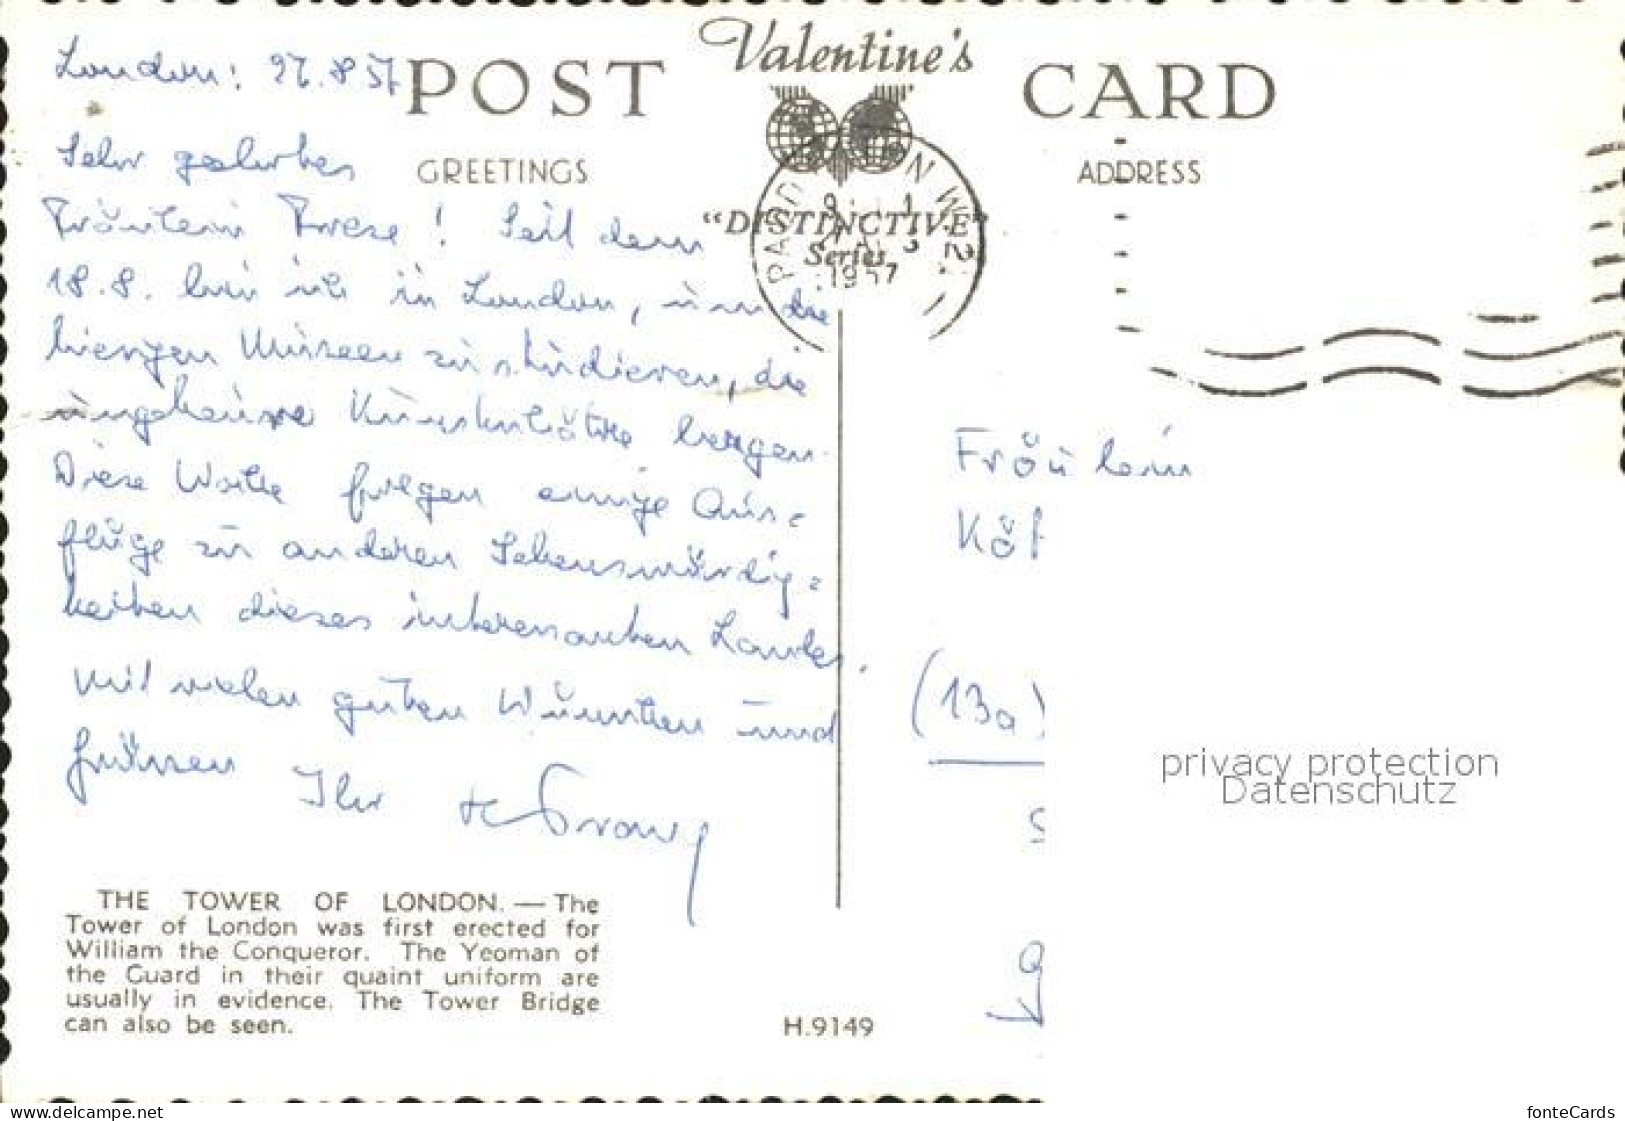 Valentine's
POST CARD
GREETINGS
ADDRESS
"DISTINCTIVE"
Series
PADDINGTON W.2.
1957
London: 27.8.57
Sehr geehrtes
Fräulein Frese! Seit dem
18.8. bin ich in London, um die
hiesigen Museen zu studieren, die
ungeheure Kunstschätze bergen.
Diese Woche folgen einige Aus=
flüge zu anderen Sehenswürdig=
keiten dieses interessanten Landes.
Mit vielen guten Wünschen und
Grüssen Ihr
Fräulein
(13a)
THE TOWER OF LONDON. — The
Tower of London was first erected for
William the Conqueror. The Yeoman of
the Guard in their quaint uniform are
usually in evidence. The Tower Bridge
can also be seen.
H.9149
privacy protection
Datenschutz
www.delcampe.net
fonteCards